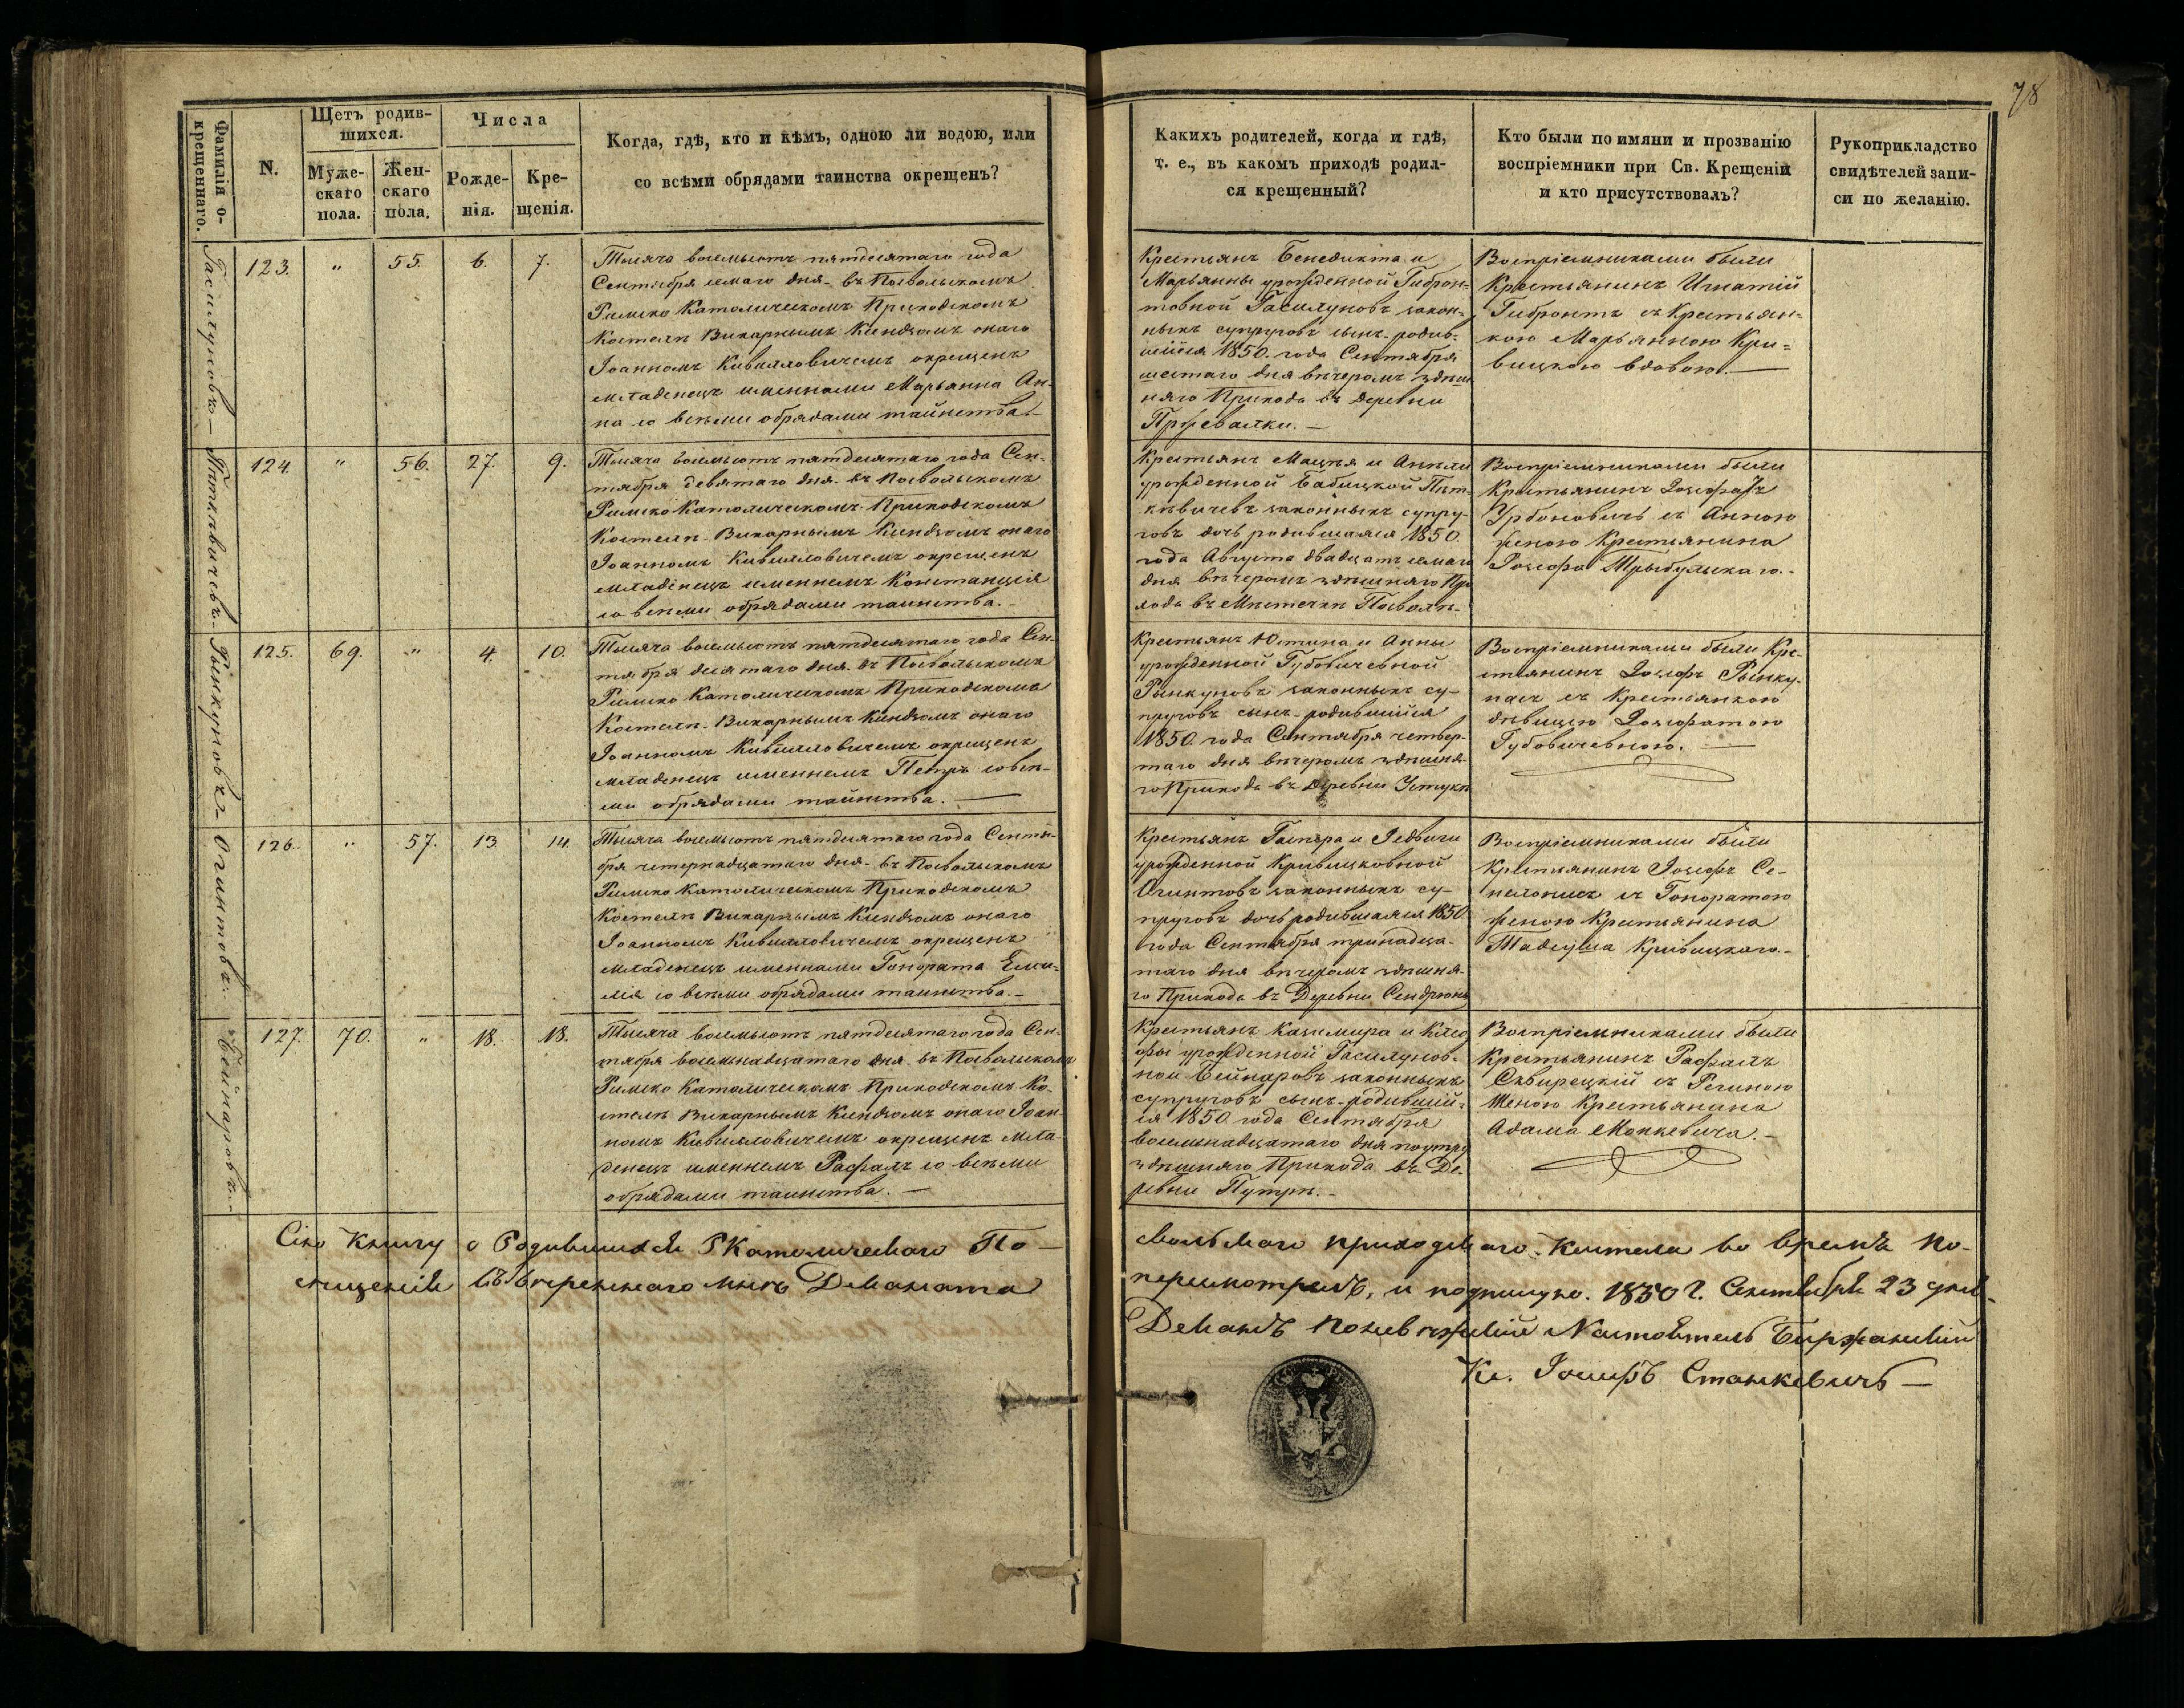 78
Фамилія о-
крещеннаго.
N.
Щетъ родив-
шихся.
Муже-
скаго
пола.
Жен-
скаго
пола.
Числа
Рожде-
нія.
Кре-
щенія.
Когда, гдѣ, кто и кѣмъ, одною ли водою, или
со всѣми обрядами таинства окрещенъ?
Каких родителей, когда и гдѣ,
т. е., въ какомъ приходѣ родил-
ся крещенный?
Кто были по имяни и прозванію
воспріемники при Св. Крещеніи
и кто присутствовалъ?
Рукоприкладство
свидѣтелей запи-
си по желанію.
Гасилуновъ
123. " 55. 6. 7.
Тысяча восемьсотъ пятдесятаго года
Сентября семаго дня въ Посвольскомъ
Римско Католическомъ Приходскомъ
Костелѣ Викарнымъ Ксендзомъ онаго
Іоанномъ окрещенъ
младенецъ именнами Марьанна Ан-
на со всѣми обрядами таинства
Крестьянъ Бенедикта и
Марьянны урожденной Гиброн-
товной Гасилуновъ закон-
ныхъ супруговъ сынъ родив-
шійся 1850. года Сентября
шестаго дня вѣчеромъ здѣш
няго Прихода въ деревни
Воспріемниками были
Крестьянинъ Игнатій
Гибронтъ съ Крестьян-
кою Марьянною Кри-
вицкою вдовою.
124. " 56. 27. 9.
Тысяча восемьсотъ пятдесятаго года Сен-
тября девятаго дня въ Посвольскомъ
Римско Католическомъ Приходскомъ
Костелѣ Викарнымъ Ксендзомъ онаго
Іоанномъ окрещенъ
младенецъ именнемъ Констанція
со всѣми обрядами таинства.
Крестьянъ Мацѣя и Анѣли
урожденной Бабицкой Пѣт-
кѣвичевъ законныхъ супру-
говъ дочь родившаяся 1850.
года Августа двадцать семаго
дня вѣчеромъ здѣшняго При
хода въ Мѣстечкѣ Посволѣ
Воспріемниками были
Крестьянинъ Іозефатъ
Урбоновичъ съ Анною
женою Крестьянина
Іозефа
Рынкуновъ
125. 69. " 4. 10.
Тысяча восемьсотъ пятдесятаго года Сен-
тября десятаго дня въ Посвольскомъ
Римско Католическомъ Приходскомъ
Костелѣ Викарнымъ Ксендзомъ онаго
Іоанномъ окрещенъ
младенецъ именнемъ Петръ со всѣ-
ми обрядами таинства.
Крестьянъ Юстина и Анны
урожденной Губовичевной
Рынкуновъ законныхъ су-
пруговъ сынъ родившійся
1850 года Сентября четвер-
таго дня вѣчеромъ здѣшня-
го Прихода въ деревни Устуки
Воспріемниками были Кре-
стянинъ Іозефъ Рынку-
насъ съ Крестьянкою
дѣвицею Іозефатою
Губовичевною.
Огинтовъ
126. " 57. 13 14.
Тысяча восемьсотъ пятдесятаго года Сентя-
бря четернадцатаго дня въ Посвольскомъ
Римско Католическомъ Приходскомъ
Костелѣ Викарнымъ Ксендзомъ онаго
Іоанномъ окрещенъ
младенецъ именнами Гонората Еми-
лія со всѣми обрядами таинства.
Крестьянъ Гаспара и Іедвиги
урожденной Кривицковной
Огинтовъ законныхъ су-
пруговъ дочь родившаяся 1850
года Сентября тринадца-
таго дня вѣчеромъ здѣшня-
го Прихода въ Деревни
Воспріемниками были
Крестьянинъ Іозефъ
съ Гоноратою
женою Крестьянина
Тадеуша Кривицкаго.
Бейнаровъ
127. 70. " 18. 18.
Тысяча восемьсотъ пятдесятаго года Сен-
тября восемьнадцатаго дня въ Посвольскомъ
Римско Католическомъ Приходскомъ Ко-
стелѣ Викарнымъ Ксендзомъ онаго Іоан
номъ окрещенъ мла-
денецъ именнемъ Рафалъ со всѣми
обрядами таинства.
Крестьянъ Казимира и Клео
фы урожденной Гасилунов-
ной Бейнаровъ законныхъ
супруговъ сынъ родившій-
ся 1850 года Сентября
восемьнадцатаго дня поутру
здѣшняго Прихода въ Де-
ревни Путри.
Воспріемниками были
Крестьянинъ Рафалъ
Сквирецкій съ Региною
женою Крестьянина
Адама Монкевича.
Сію Книгу о Родившихся РКатолическаго По-
свольскаго приходскаго Костела во время по-
сещенія ввереннаго мнѣ Деканата
пересмотрелъ, и подпишусь. 1850 г. Сентября 23 дня
Деканъ Поневѣжскій Настоятель Биржанскій
Кс. Іосифъ Станкевичъ